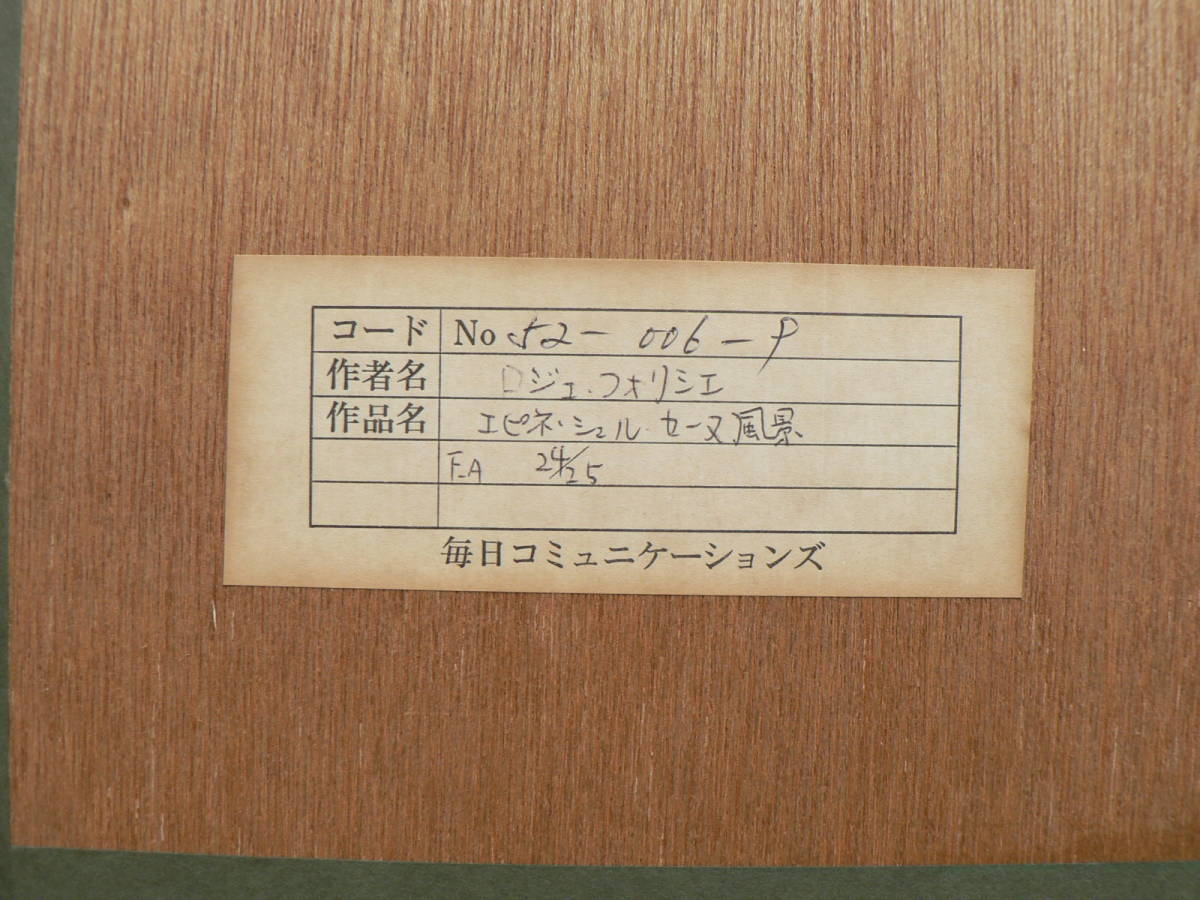 コード No 52-006-P
作者名 ロジェ・フォリシエ
作品名 エピネ・シュル・セーヌ風景
E.A 24/25
毎日コミュニケーションズ